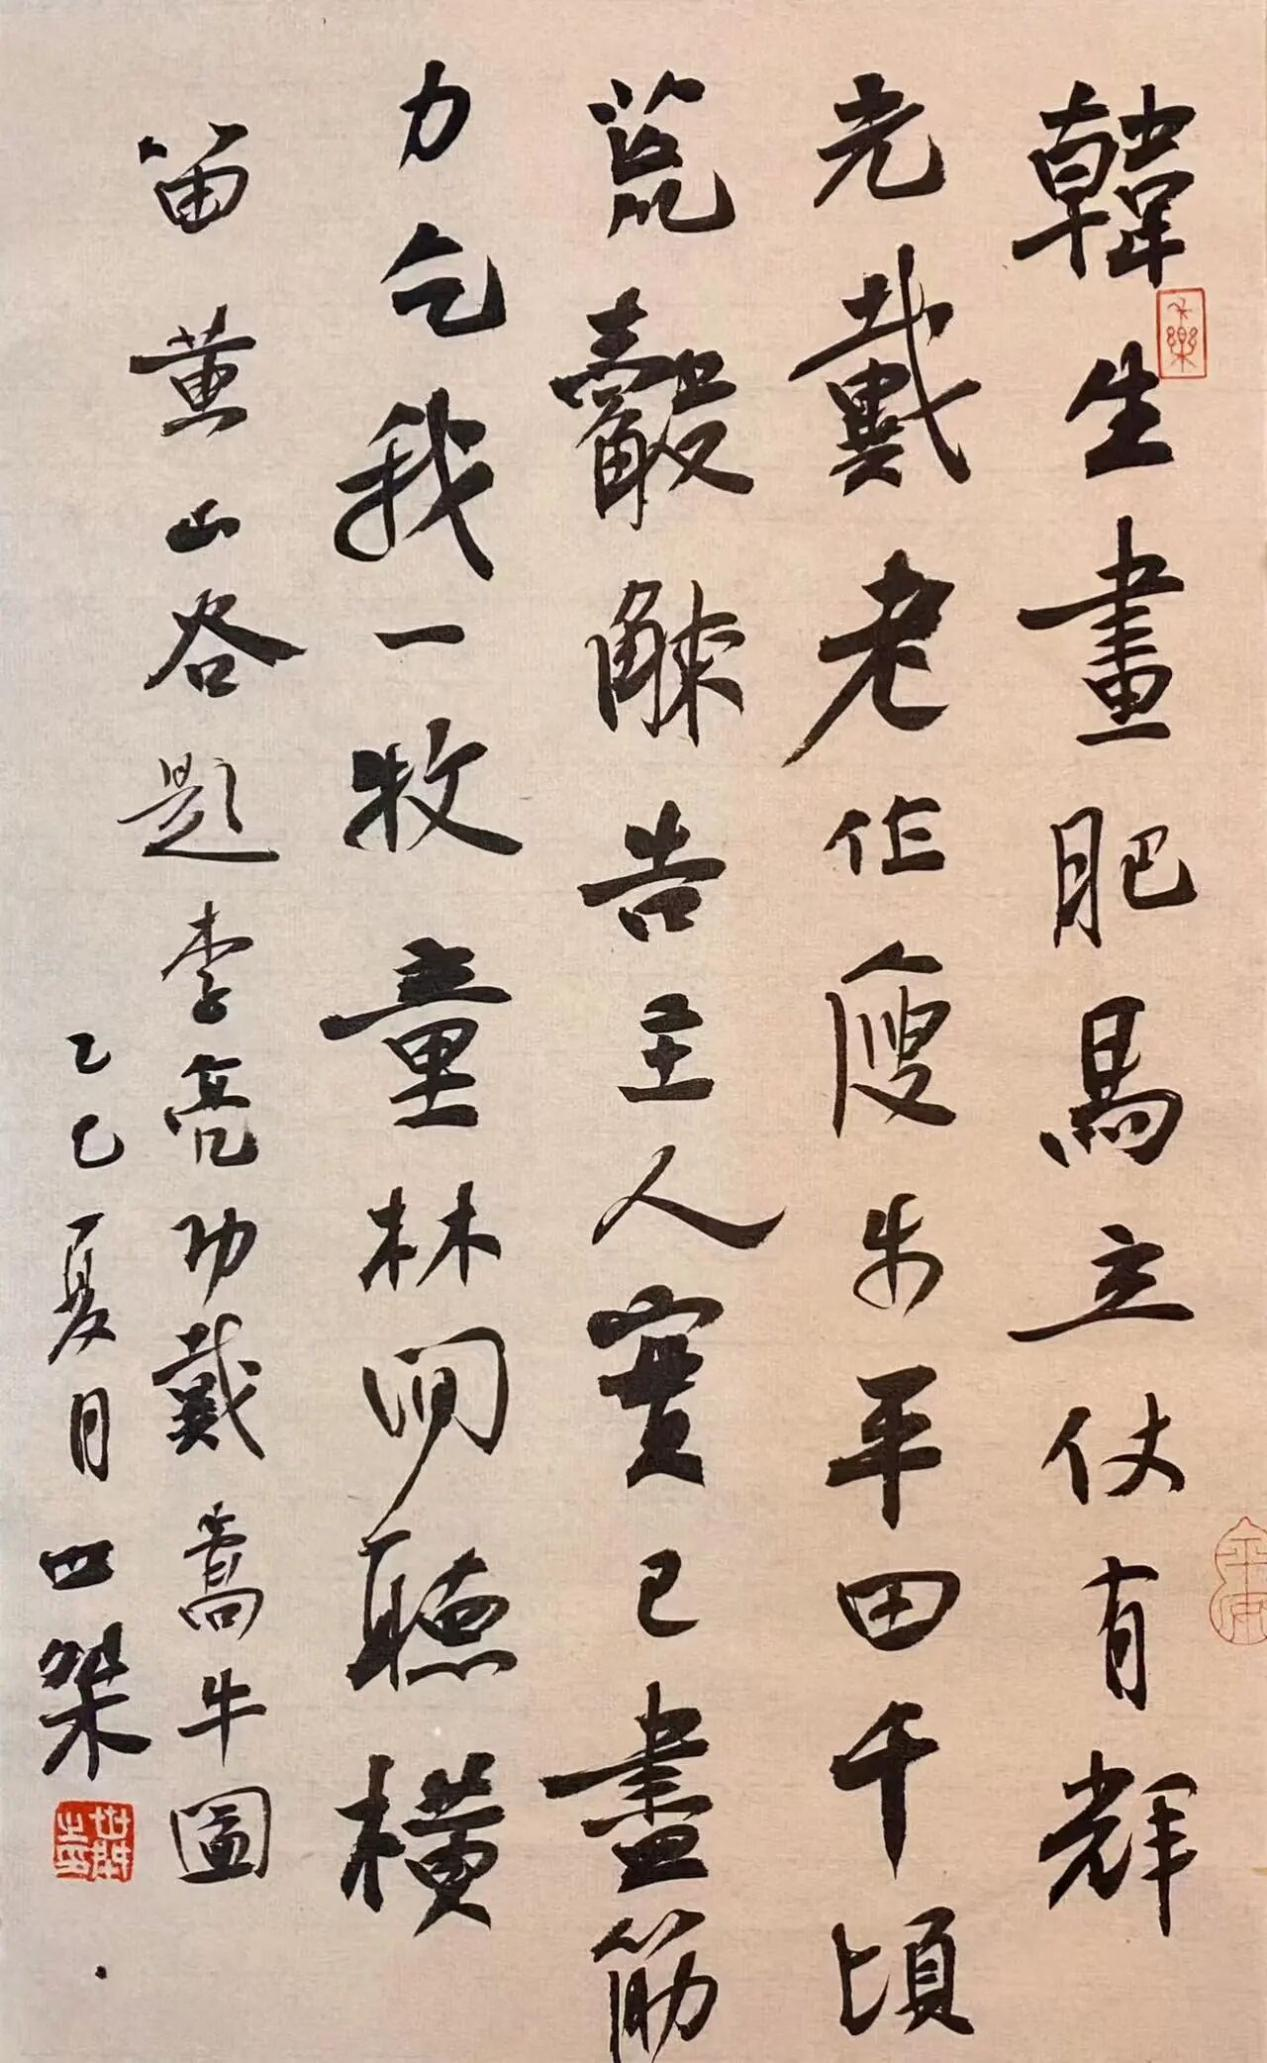 韓生畫肥馬立仗有輝
光戴老作瘦牛平田千頃
荒觳觫告主人實已盡筋
力乞我一牧童林間聽橫
笛 黄山谷題李亮功戴嵩牛圖
乙巳夏月 世桀